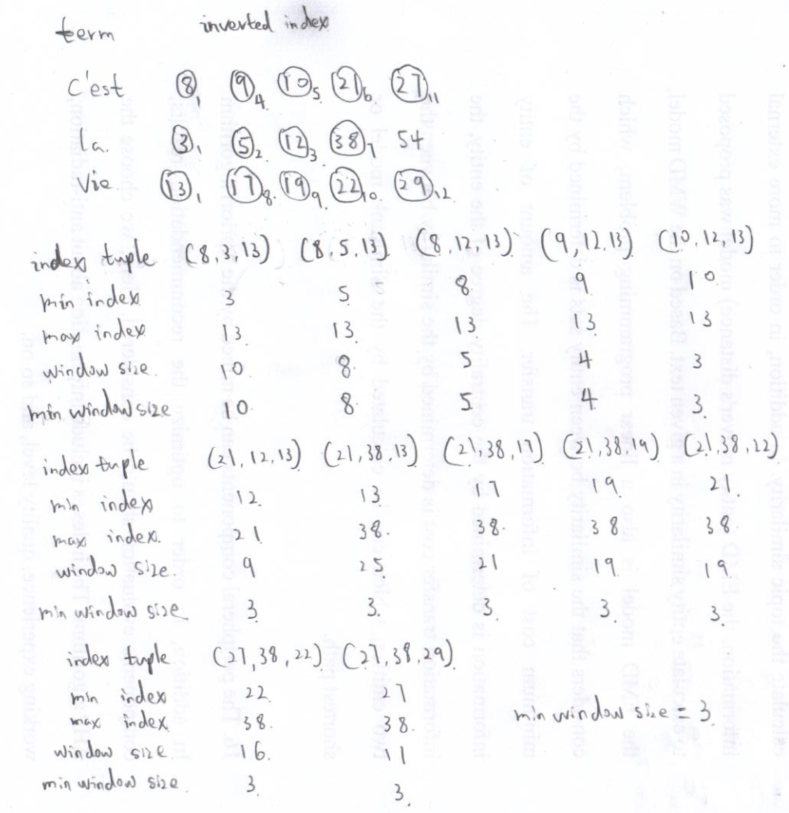 term inverted index
c'est 8₁ 9₄ 10₅ 21₆ 27₁₁
la. 3₁ 5₂ 12₃ 38₇ 54
vie 13₁ 17₈ 19₉ 22₁₀ 29₁₂
index tuple (8,3,13) (8,5,13) (8,12,13) (9,12,13) (10,12,13)
min index 3 5 8 9 10
max index 13 13 13 13 13
window size. 10 8 5 4 3
min window size 10 8 5 4 3
index tuple (21,12,13) (21,38,13) (21,38,17) (21,38,19) (21,38,22)
min index 12 13 17 19 21
max index. 21 38 38 38 38
window size. 9 25 21 19 19
min window size 3 3 3 3 3
index tuple (27,38,22) (27,38,29)
min index 22 27
max index 38 38 min window size = 3
window size 16 11
min window size 3 3